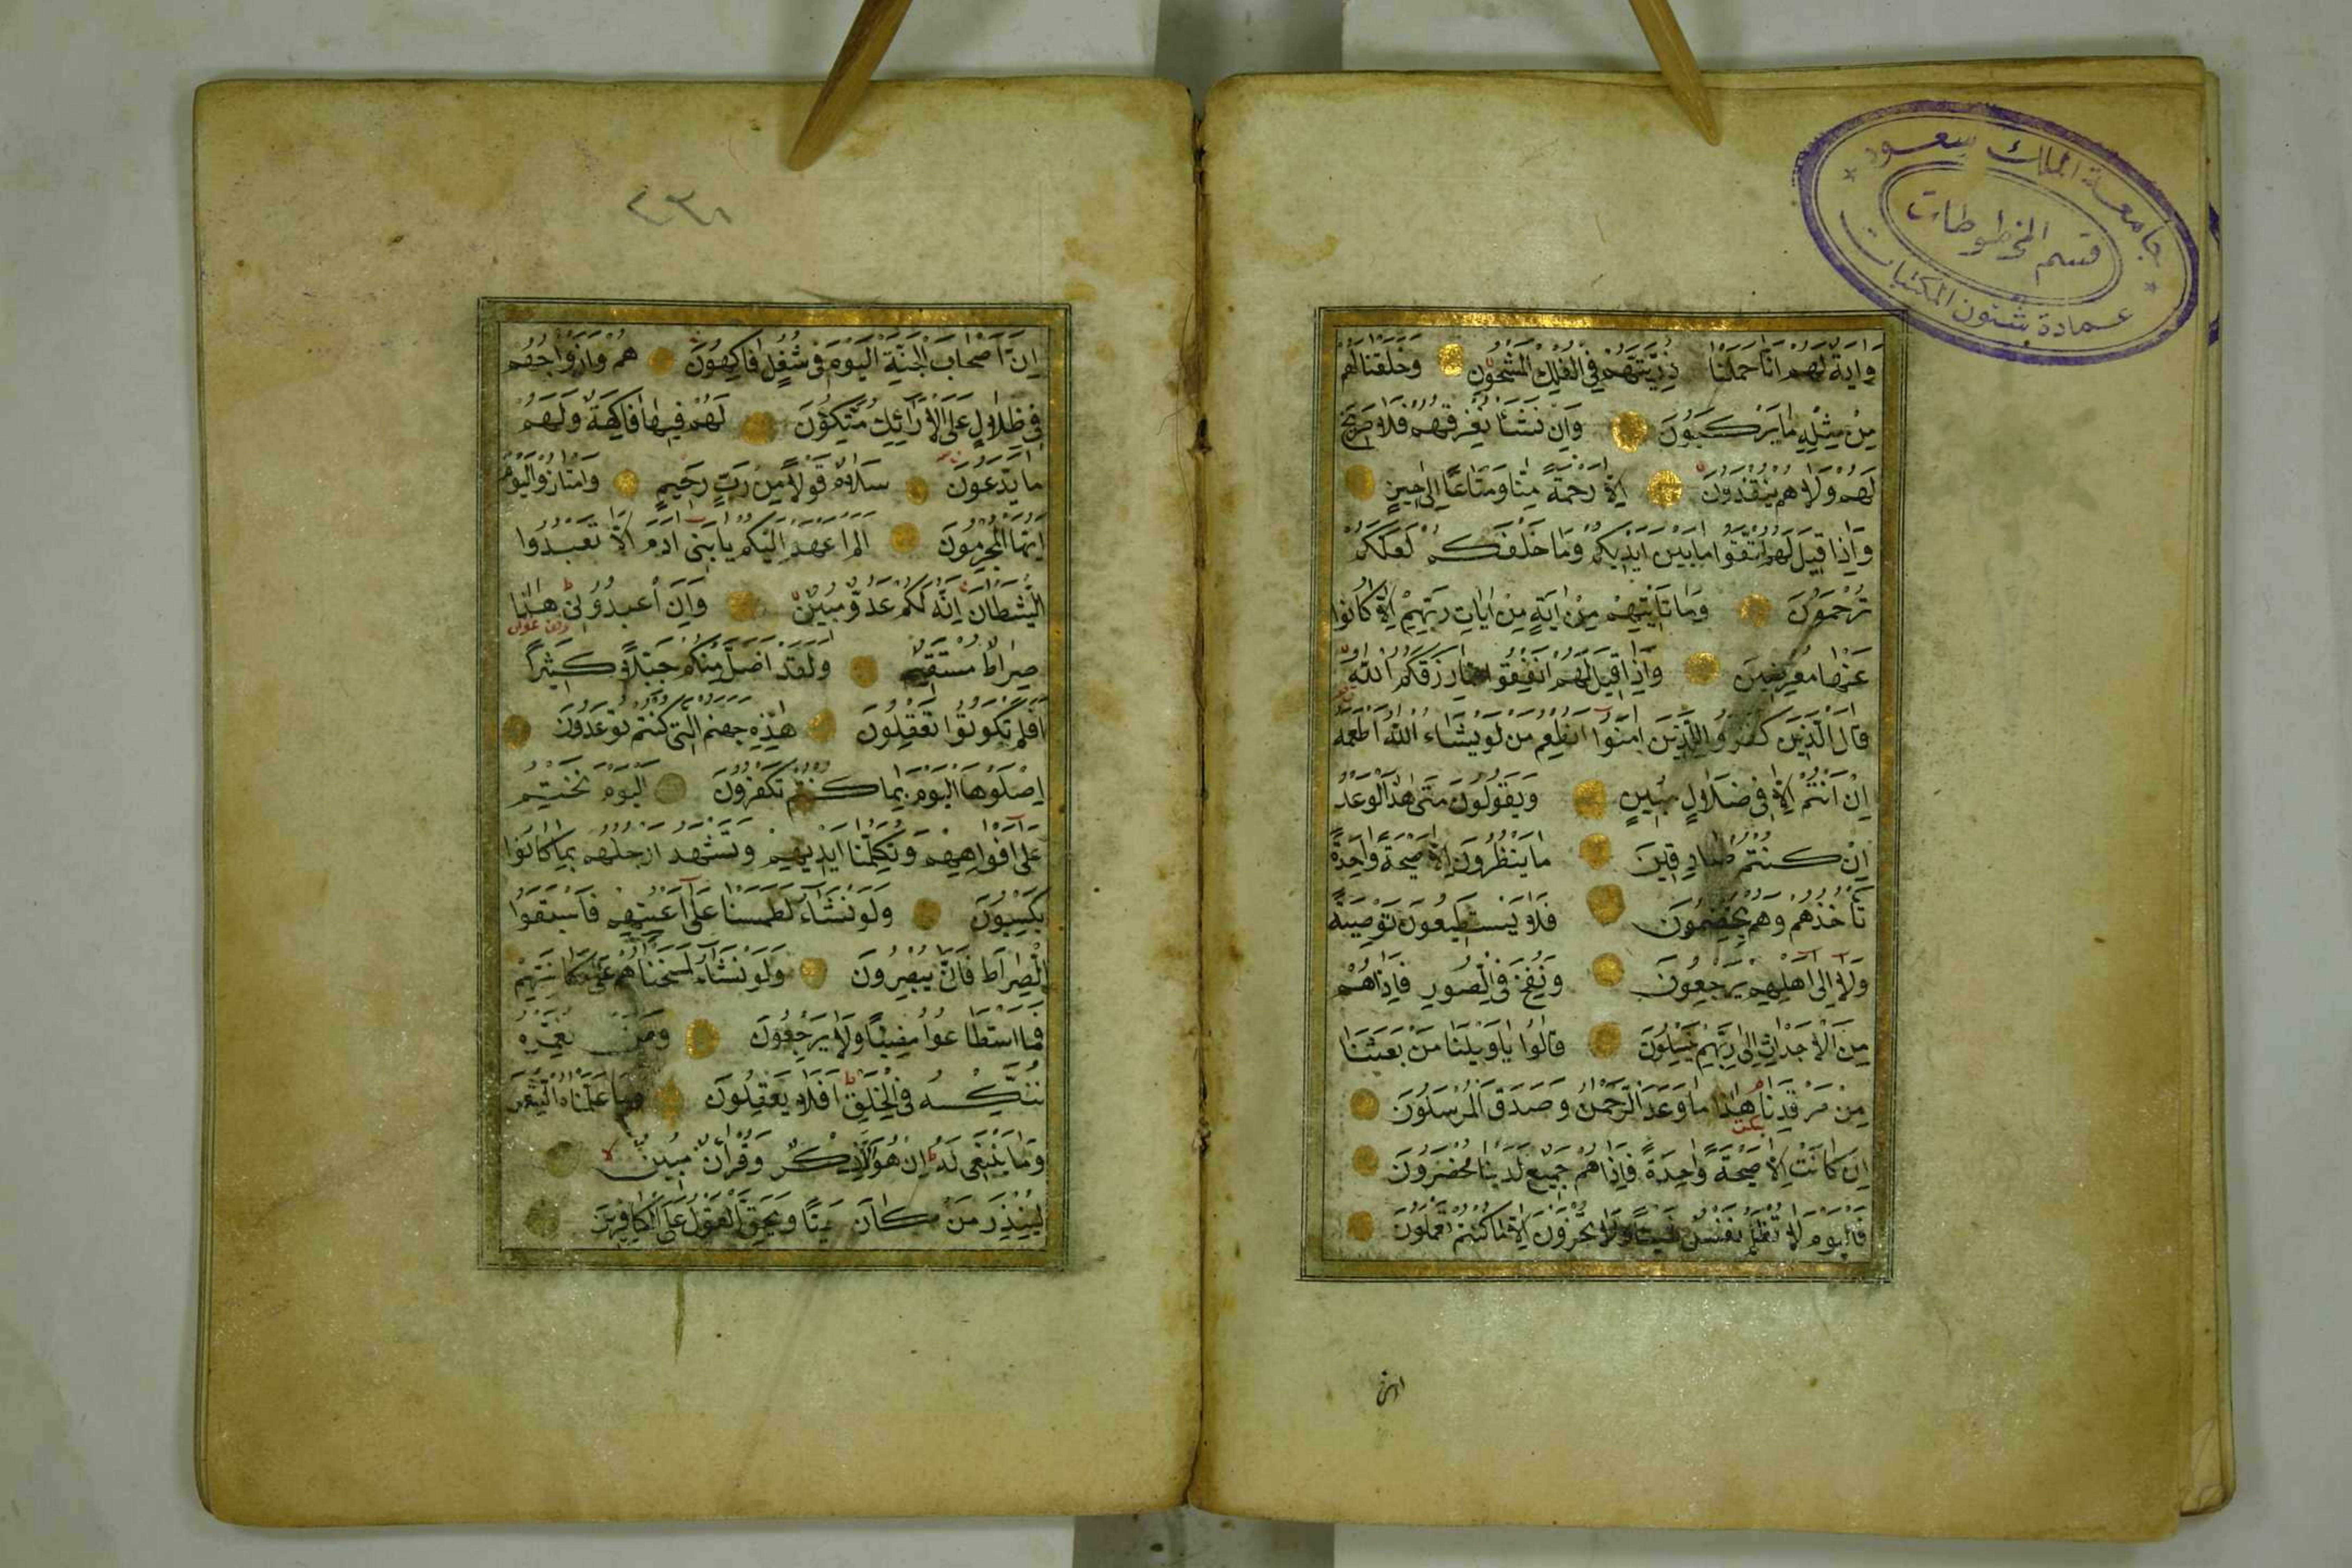 جامعة الملك سعود
قسم المخطوطات
عمادة شئون المكتبات
وَايَةٌ لَهُم انَّا حَمَلْنَا ذُرِّيَّتَهُمْ فِي الْفُلْكِ الْمَشْحُونِ وَخَلَقْنَا لَهُمْ
مِنْ مِثْلِهِ مَا يَرْكَبُونَ وَاِنْ نَشَأْ نُغْرِقْهُمْ فَلَا صَرِيخَ
لَهُمْ وَلَا هُمْ يُنْقَذُونَ اِلَّا رَحْمَةً مِنَّا وَمَتَاعًا اِلَى حِينٍ
وَاِذَا قِيلَ لَهُمُ اتَّقُوا مَا بَيْنَ اَيْدِيكُمْ وَمَا خَلْفَكُمْ لَعَلَّكُمْ
تُرْحَمُونَ وَمَا تَأْتِيهِمْ مِنْ ايَةٍ مِنْ ايَاتِ رَبِّهِمْ اِلَّا كَانُوا
عَنْهَا مُعْرِضِينَ وَاِذَا قِيلَ لَهُمْ اَنْفِقُوا مِمَّا رَزَقَكُمُ اللّٰهُ
قَالَ الَّذِينَ كَفَرُوا لِلَّذِينَ امَنُوا اَنُطْعِمُ مَنْ لَوْ يَشَاءُ اللّٰهُ اَطْعَمَهُ
اِنْ اَنْتُمْ اِلَّا فِي ضَلَالٍ مُبِينٍ وَيَقُولُونَ مَتَى هٰذَا الْوَعْدُ
اِنْ كُنْتُمْ صَادِقِينَ مَا يَنْظُرُونَ اِلَّا صَيْحَةً وَاحِدَةً
تَأْخُذُهُمْ وَهُمْ يَخِصِّمُونَ فَلَا يَسْتَطِيعُونَ تَوْصِيَةً
وَلَا اِلَى اَهْلِهِمْ يَرْجِعُونَ وَنُفِخَ فِي الصُّورِ فَاِذَا هُمْ
مِنَ الْاَجْدَاثِ اِلَى رَبِّهِمْ يَنْسِلُونَ قَالُوا يَا وَيْلَنَا مَنْ بَعَثَنَا
مِنْ مَرْقَدِنَا هٰذَا مَا وَعَدَ الرَّحْمٰنُ وَصَدَقَ الْمُرْسَلُونَ
اِنْ كَانَتْ اِلَّا صَيْحَةً وَاحِدَةً فَاِذَا هُمْ جَمِيعٌ لَدَيْنَا مُحْضَرُونَ
فَالْيَوْمَ لَا تُظْلَمُ نَفْسٌ شَيْئًا وَلَا تُجْزَوْنَ اِلَّا مَا كُنْتُمْ تَعْمَلُونَ
ان
٢٣٨
اِنَّ اَصْحَابَ الْجَنَّةِ الْيَوْمَ فِي شُغُلٍ فَاكِهُونَ هُمْ وَاَزْوَاجُهُمْ
فِي ظِلَالٍ عَلَى الْاَرَائِكِ مُتَّكِؤُنَ لَهُمْ فِيهَا فَاكِهَةٌ وَلَهُمْ
مَا يَدَّعُونَ سَلَامٌ قَوْلًا مِنْ رَبٍّ رَحِيمٍ وَامْتَازُوا الْيَوْمَ
اَيُّهَا الْمُجْرِمُونَ اَلَمْ اَعْهَدْ اِلَيْكُمْ يَا بَنِي ادَمَ اَنْ لَا تَعْبُدُوا
الشَّيْطَانَ اِنَّهُ لَكُمْ عَدُوٌّ مُبِينٌ وَاَنِ اعْبُدُونِي هٰذَا
صِرَاطٌ مُسْتَقِيمٌ وَلَقَدْ اَضَلَّ مِنْكُمْ جِبِلًّا كَثِيرًا
اَفَلَمْ تَكُونُوا تَعْقِلُونَ هٰذِهِ جَهَنَّمُ الَّتِي كُنْتُمْ تُوعَدُونَ
اِصْلَوْهَا الْيَوْمَ بِمَا كُنْتُمْ تَكْفُرُونَ اَلْيَوْمَ نَخْتِمُ
عَلَى اَفْوَاهِهِمْ وَتُكَلِّمُنَا اَيْدِيهِمْ وَتَشْهَدُ اَرْجُلُهُمْ بِمَا كَانُوا
يَكْسِبُونَ وَلَوْ نَشَاءُ لَطَمَسْنَا عَلَى اَعْيُنِهِمْ فَاسْتَبَقُوا
الصِّرَاطَ فَاَنَّى يُبْصِرُونَ وَلَوْ نَشَاءُ لَمَسَخْنَاهُمْ عَلَى مَكَانَتِهِمْ
فَمَا اسْتَطَاعُوا مُضِيًّا وَلَا يَرْجِعُونَ وَمَنْ نُعَمِّرْهُ
نُنَكِّسْهُ فِي الْخَلْقِ اَفَلَا يَعْقِلُونَ وَمَا عَلَّمْنَاهُ الشِّعْرَ
وَمَا يَنْبَغِي لَهُ اِنْ هُوَ اِلَّا ذِكْرٌ وَقُرْاٰنٌ مُبِينٌ
لِيُنْذِرَ مَنْ كَانَ حَيًّا وَيَحِقَّ الْقَوْلُ عَلَى الْكَافِرِينَ